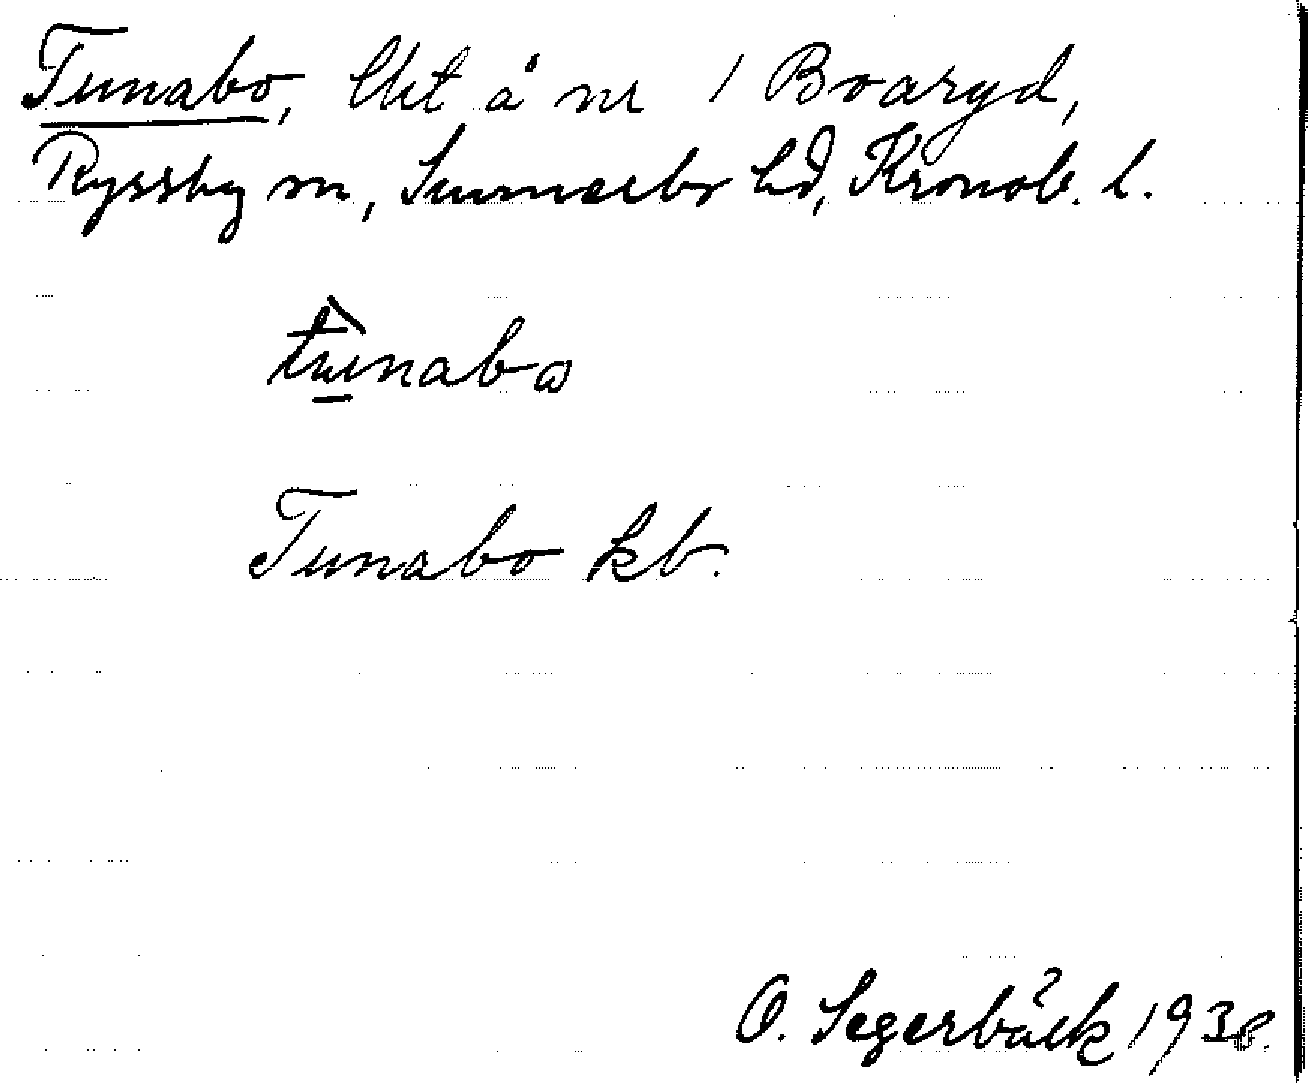 Tunabo, lht å nr 1 Boaryd,
Ryssby sn, Sunnerbo hd, Kronob. l.
tunabo
Tunabo kb.
O. Segerbäck 1938.